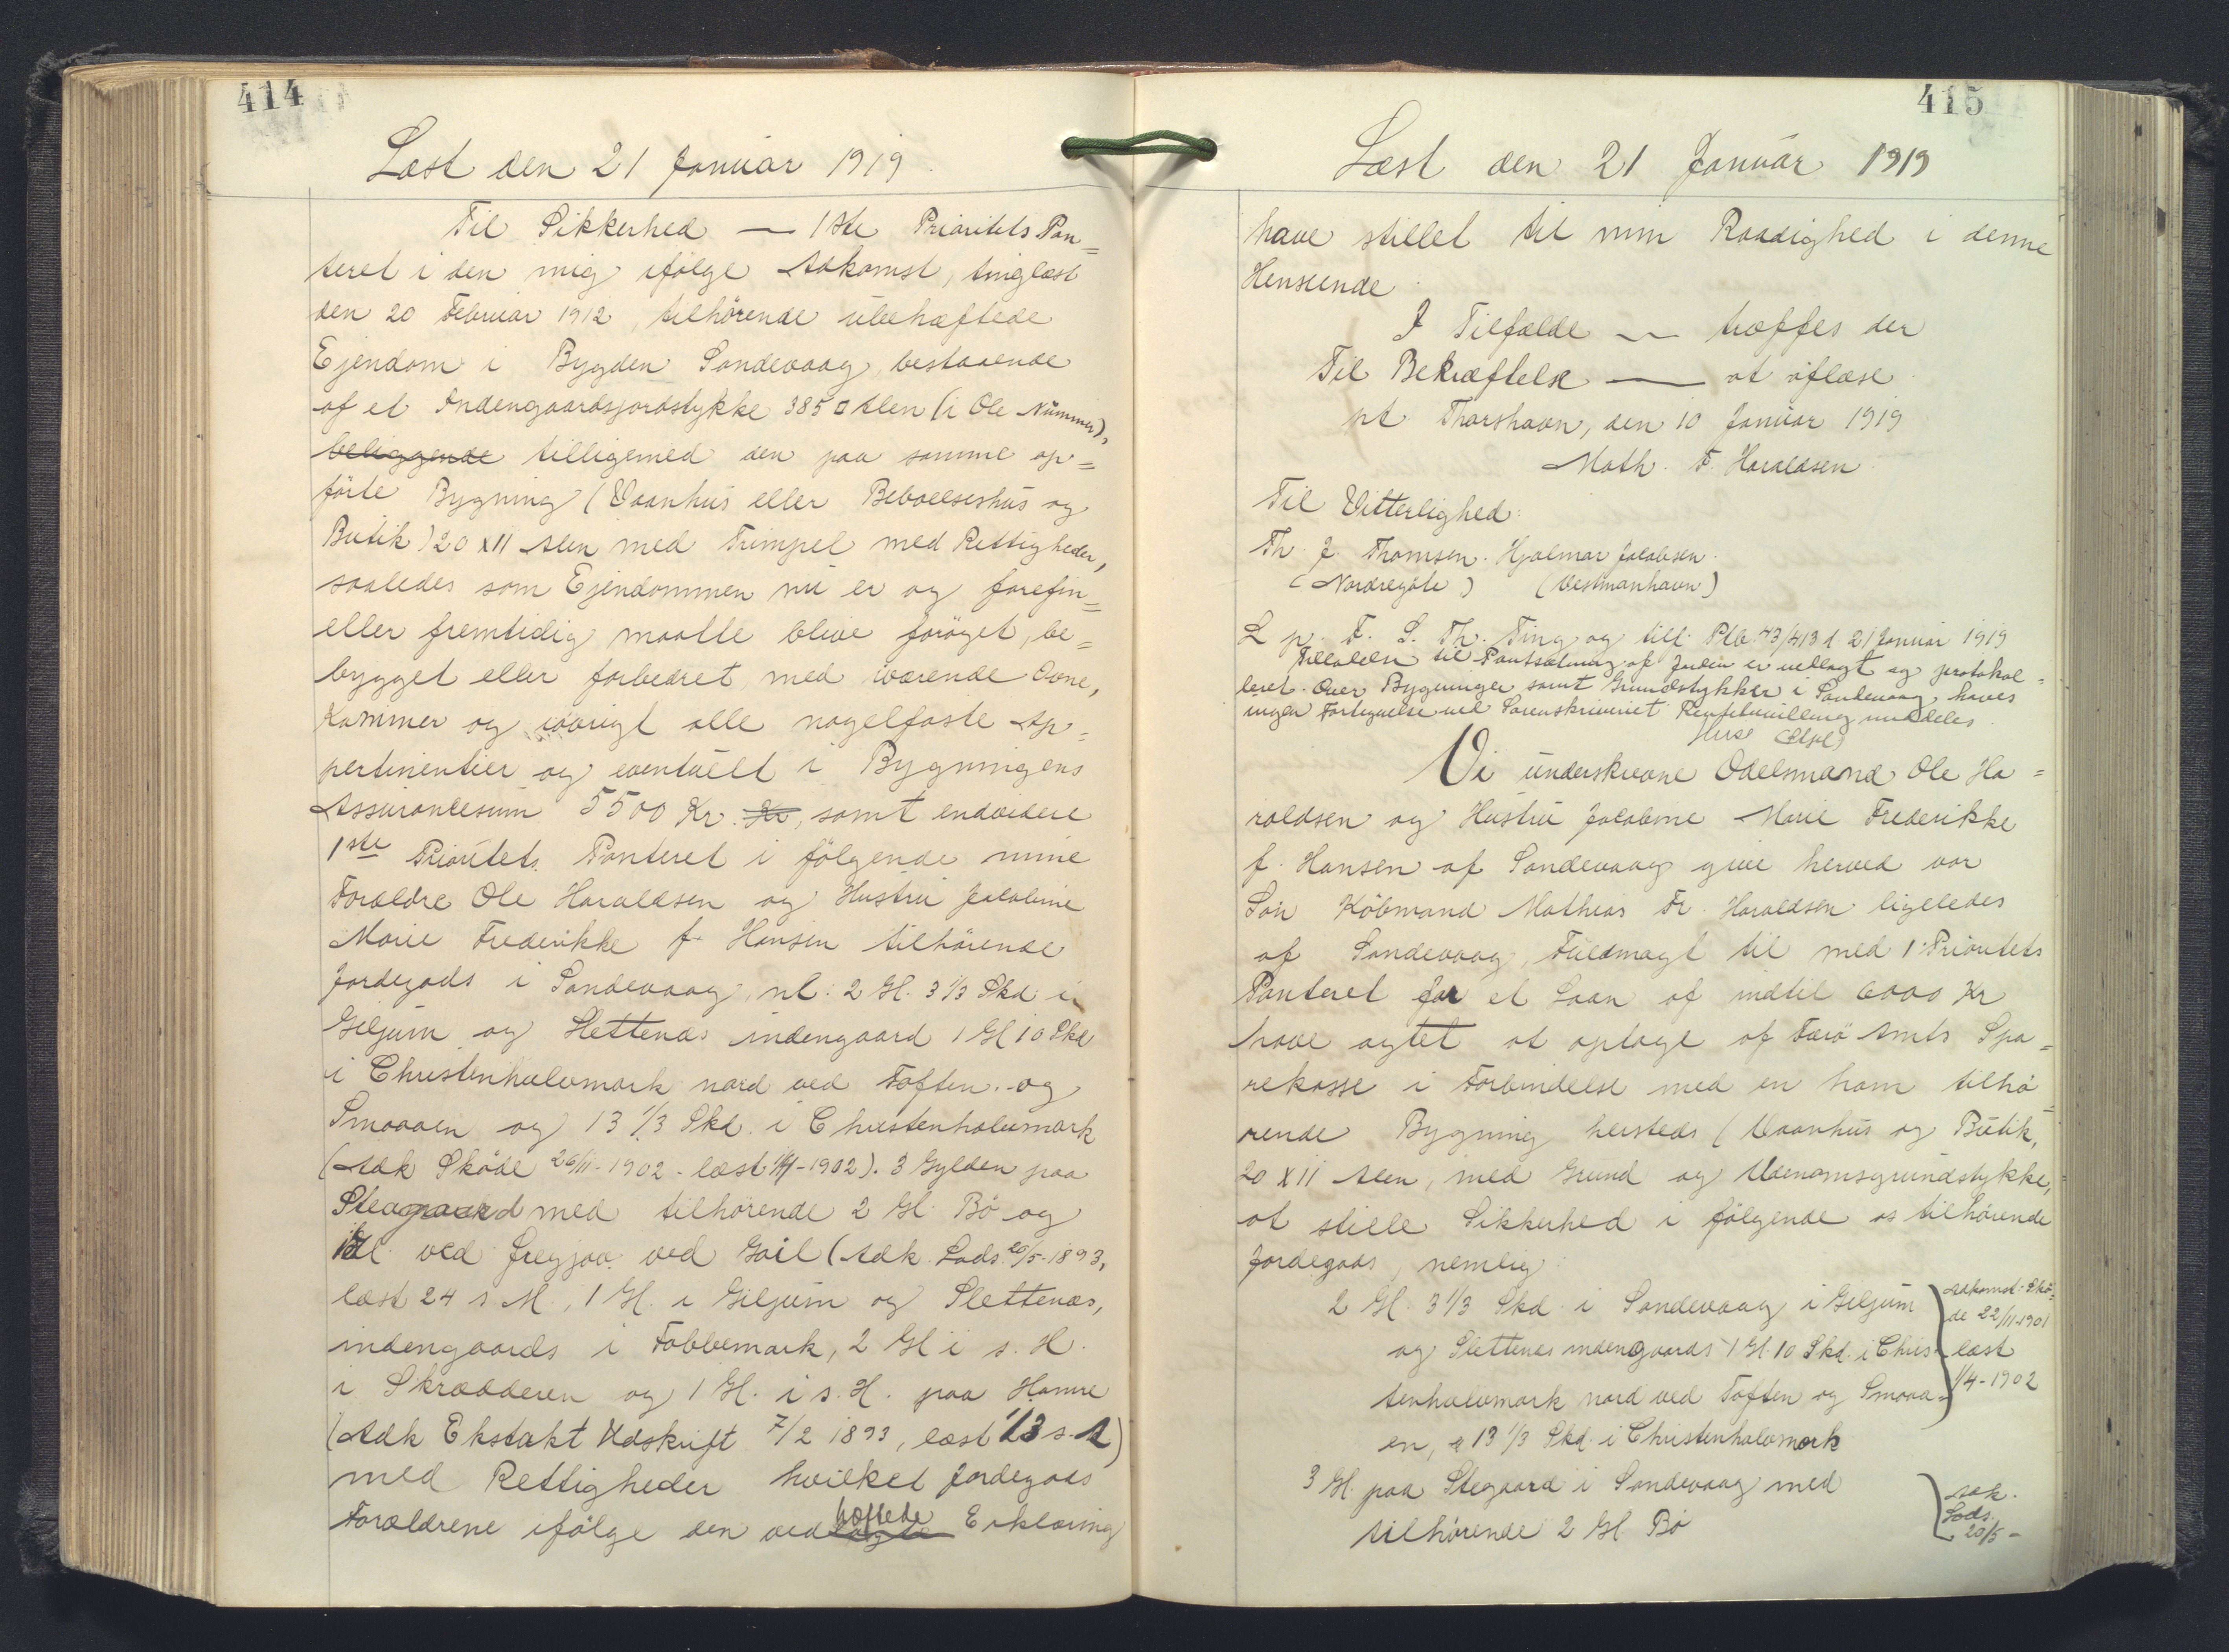 414
Læst den 21 Januar 1919.
Til Sikkerhed — 1ste Prioritets Pan=
teret i den mig ifölge Adkomst, tinglæst
den 20 Februar 1912, tilhörende ubehæftede
Ejendom i Bygden Sandevaag, bestaaende
af et Indengaardsjordstykke 385 □ Alen (i Ole Nummer),
beliggende tilligemed den paa samme op=
förte Bygning (Vaanhus eller Beboelseshus og
Butik) 20 x 11 Alen med Trimpel med Rettigheder,
saaledes som Ejendommen nu er og forefin=
eller fremtidig maatte blive foröget, be=
bygget eller forbedret med iværende Ovne,
Kammer og iøvrigt alle nagelfaste Ap=
pertinentier og eventuelt i Bygningens
Assurancesum 5500 Kr. Kr, samt endvidere
1ste Prioritets Panteret i fölgende mine
Forældre Ole Haraldsen og Hustru Jacobine
Marie Frederikke f. Hansen tilhörende
Jordegods i Sandevaag, nl: 2 Gl. 3 1/3 Skd i
Giljum og Slettenæs indengaard 1 Gl 10 Skd
i Christenhulvmark nord ved Toften og
Smaaaen og 13 1/3 Skd. i Christenhalvmark
(Adk Sköde 26/11-1902 - læst 1/4-1902). 3 Gylden paa
Steagaard med tilhörende 2 Gl. Bö og
1 Gl. ved ved Gail (Adk. Lods. 20/5-1893,
læst 24 s. M., 1 Gl. i Giljum og Slettenæs,
indengaards i Tobbemark, 2 Gl i s. H.
i Skrædderen og 1 Gl. i s. H. paa Hamre
(Adk Ekstakt Udskrift 7/2 1893, læst 1/3 s. A)
med Rettigheder hvilket Jordegods
Forældrene ifölge den vedhæftede Erklæring
415
Læst den 21 Januar 1919
have stillet til min Raadighed i denne
Henseende.
I Tilfælde — træffes der
Til Bekræftelse — at aflæse
pt Thorshavn, den 10 Januar 1919
Math. F. Haraldsen
Til Vitterlighed:
Th. J. Thomsen. Hjalmar Jacobsen.
(Nordregöte) (Vestmanhavn)
L p. F. S. Th. Ting og till. Ptb. 43/413 d 21 Januar 1919
Tilladelse til Pantsætning af Jorden er vedlagt og protokol=
leret. Over Bygninger samt Grundstykker i Sandevaag haves
ingen Fortegnelse ved Sorenskriveriet. Rentebevilling meddeles
Vi underskrevne Odelsmand Ole Ha=
raldsen og Hustru Jacobine Marie Frederikke
f. Hansen af Sandevaag give herved vor
Sön Köbmand Mathias Fr. Haraldsen ligeledes
af Sandevaag, Fuldmagt til med 1 Prioritets
Panteret for et Laan af indtil 6000 Kr
have agtet at optage af Færö Amts Spa=
rekasse i Forbindelse med en ham tilhö=
rende Bygning hersteds (Vaanhus og Butik,
20 x 11 Alen, med Grund og Udenomsgrundstykke,
at stille Sikkerhed i fölgende os tilhörende
Jordegods, nemlig:
2 Gl. 3 1/3 Skd. i Sandevaag i Giljum
og Slettenes indengaards 1 Gl. 10 Skd. i Chris=
tenhalvmark nord ved Toften og Smaaa=
en, a 13 1/3 Skd. i Christenhalvmark
Adkomst-Skö=
de 22/11-1901
læst
1/4-1902
3 Gl. paa Stegaard i Sandevaag med
tilhörende 2 Gl. Bö
Adk.
Lods.
20/5-